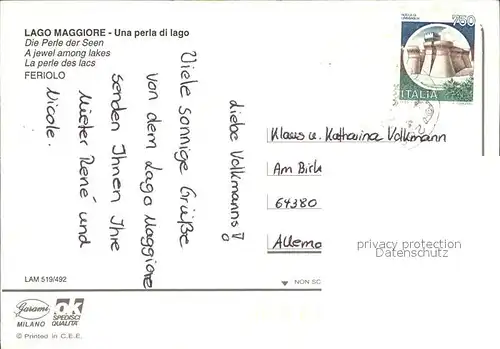 LAGO MAGGIORE - Una perla di lago
Die Perle der Seen
A jewel among lakes
La perle des lacs
FERIOLO
750
ITALIA
Liebe Volkmanns!
Viele sonnige Grüße
von dem Lago Maggiore
senden Ihnen Ihre
Mieter René und
Nicole.
Klaus u. Katharina Volkmann
Am Birk
64380
Allema
privacy protection
Datenschutz
LAM 519/492
NON SC
Garami
MILANO
ok
SPEDISCI
QUALITA'
© Printed in C.E.E.